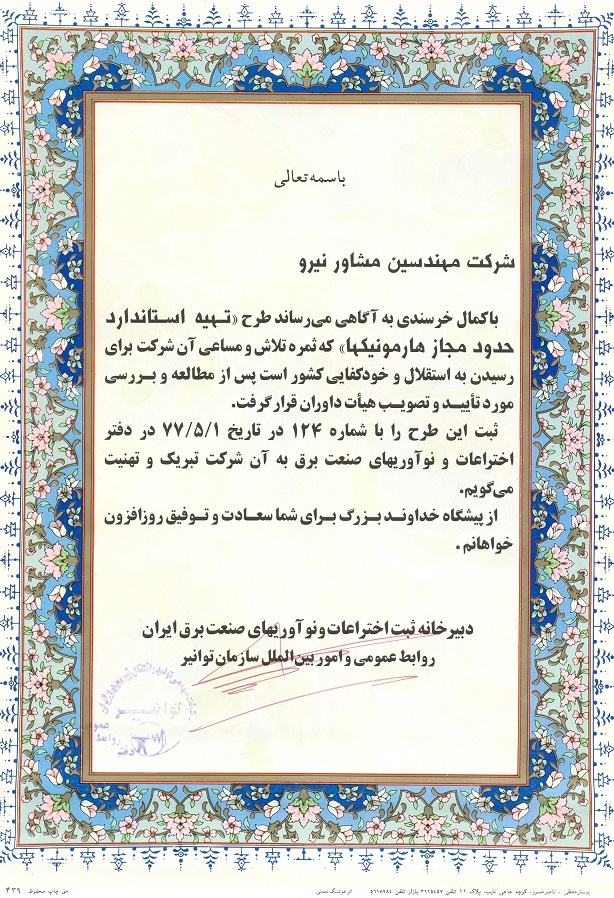 باسمه تعالی
شرکت مهندسین مشاور نیرو
باکمال خرسندی به آگاهی می‌رساند طرح «تهیه استاندارد
حدود مجاز هارمونیکها» که ثمره تلاش و مساعی آن شرکت برای
رسیدن به استقلال و خودکفایی کشور است پس از مطالعه و بررسی
مورد تأیید و تصویب هیأت داوران قرار گرفت.
ثبت این طرح را با شماره ۱۲۴ در تاریخ ۷۷/۵/۱ در دفتر
اختراعات و نوآوریهای صنعت برق به آن شرکت تبریک و تهنیت
می‌گویم.
از پیشگاه خداوند بزرگ برای شما سعادت و توفیق روزافزون
خواهانم.
دبیرخانه ثبت اختراعات و نوآوریهای صنعت برق ایران
روابط عمومی و امور بین‌الملل سازمان توانیر
توانیر
روابط عمومی
دفتر
پوستر حافظی - ناصرخسرو، کوچه حاجی نایب، پلاک ۱۱ تلفن ۳۱۱۵۴۵۷ بازار-تلفن ۵۶۱۸۹۸۴ اثر هوشنگ حق چاپ محفوظ ۴۳۹